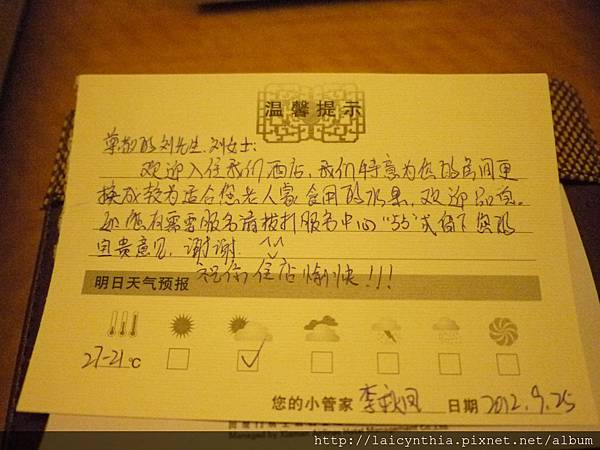 温馨提示
尊敬的刘先生.刘女士:
欢迎入住我们酒店,我们特意为您的房间更
换成较为适合您老人家食用的水果,欢迎品尝.
如您有需要服务请拨打服务中心"55"或留下您的
宝贵意见,谢谢.^^
祝您住店愉快!!!
明日天气预报
27-21℃
您的小管家 李秋凤 日期 2012.9.25
Managed by Xiamen Airlines Hotel Management Co., Ltd
http://laicynthia.pixnet.net/album